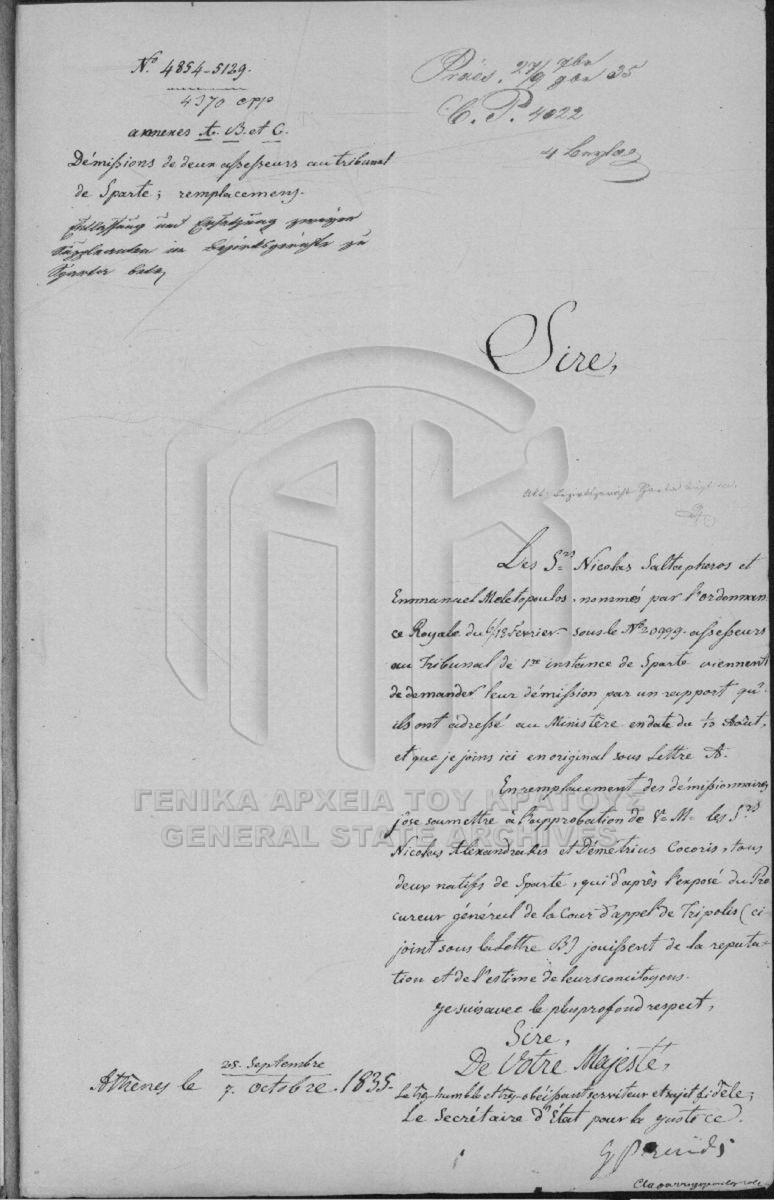 No. 4854-5129.
4370 exp
annexes A. B. et C.
Démissions de deux assesseurs au tribunal
de Sparte; remplacemens.
Entlassung und Ersetzung zweier
Supplenten im Bezirksgerichte zu
Sparta betr.
Präs. 27/9 7br 35
C. P. 4022
Sire,
Akt: Bezirksgericht Sparta
Les Srs Nicolas Saltapheros et
Emmanuel Meletopoulos, nommés par l'ordonnan
ce Royale du 6/18 Fevrier sous le No 20999. assesseurs
au Tribunal de 1re instance de Sparte viennent
de demander leur démission par un rapport qu'
ils ont adressé au Ministère en date du Août,
et que je joins ici en original sous Lettre A.
En remplacement des démissionnaires
j'ose soumettre à l'approbation de V= M= les Srs
Nicolas Alexandrakis et Démétrius Cocoris, tous
deux natifs de Sparte, qui d'après l'exposé du Pro
cureur général de la Cour d'appel de Tripolis (ci-
joint sous la Lettre B) jouissent de la reputa-
tion et de l'estime de leurs concitoyens.
Je suis avec le plus profond respect,
Sire,
De Votre Majesté,
Le très-humble et très-obéissant serviteur et sujet fidèle;
Le Secrétaire d'Etat pour la Justice.
Athènes le 25. Septembre / 7. Octobre. 1835.
ΓΕΝΙΚΑ ΑΡΧΕΙΑ ΤΟΥ ΚΡΑΤΟΥΣ
GENERAL STATE ARCHIVES